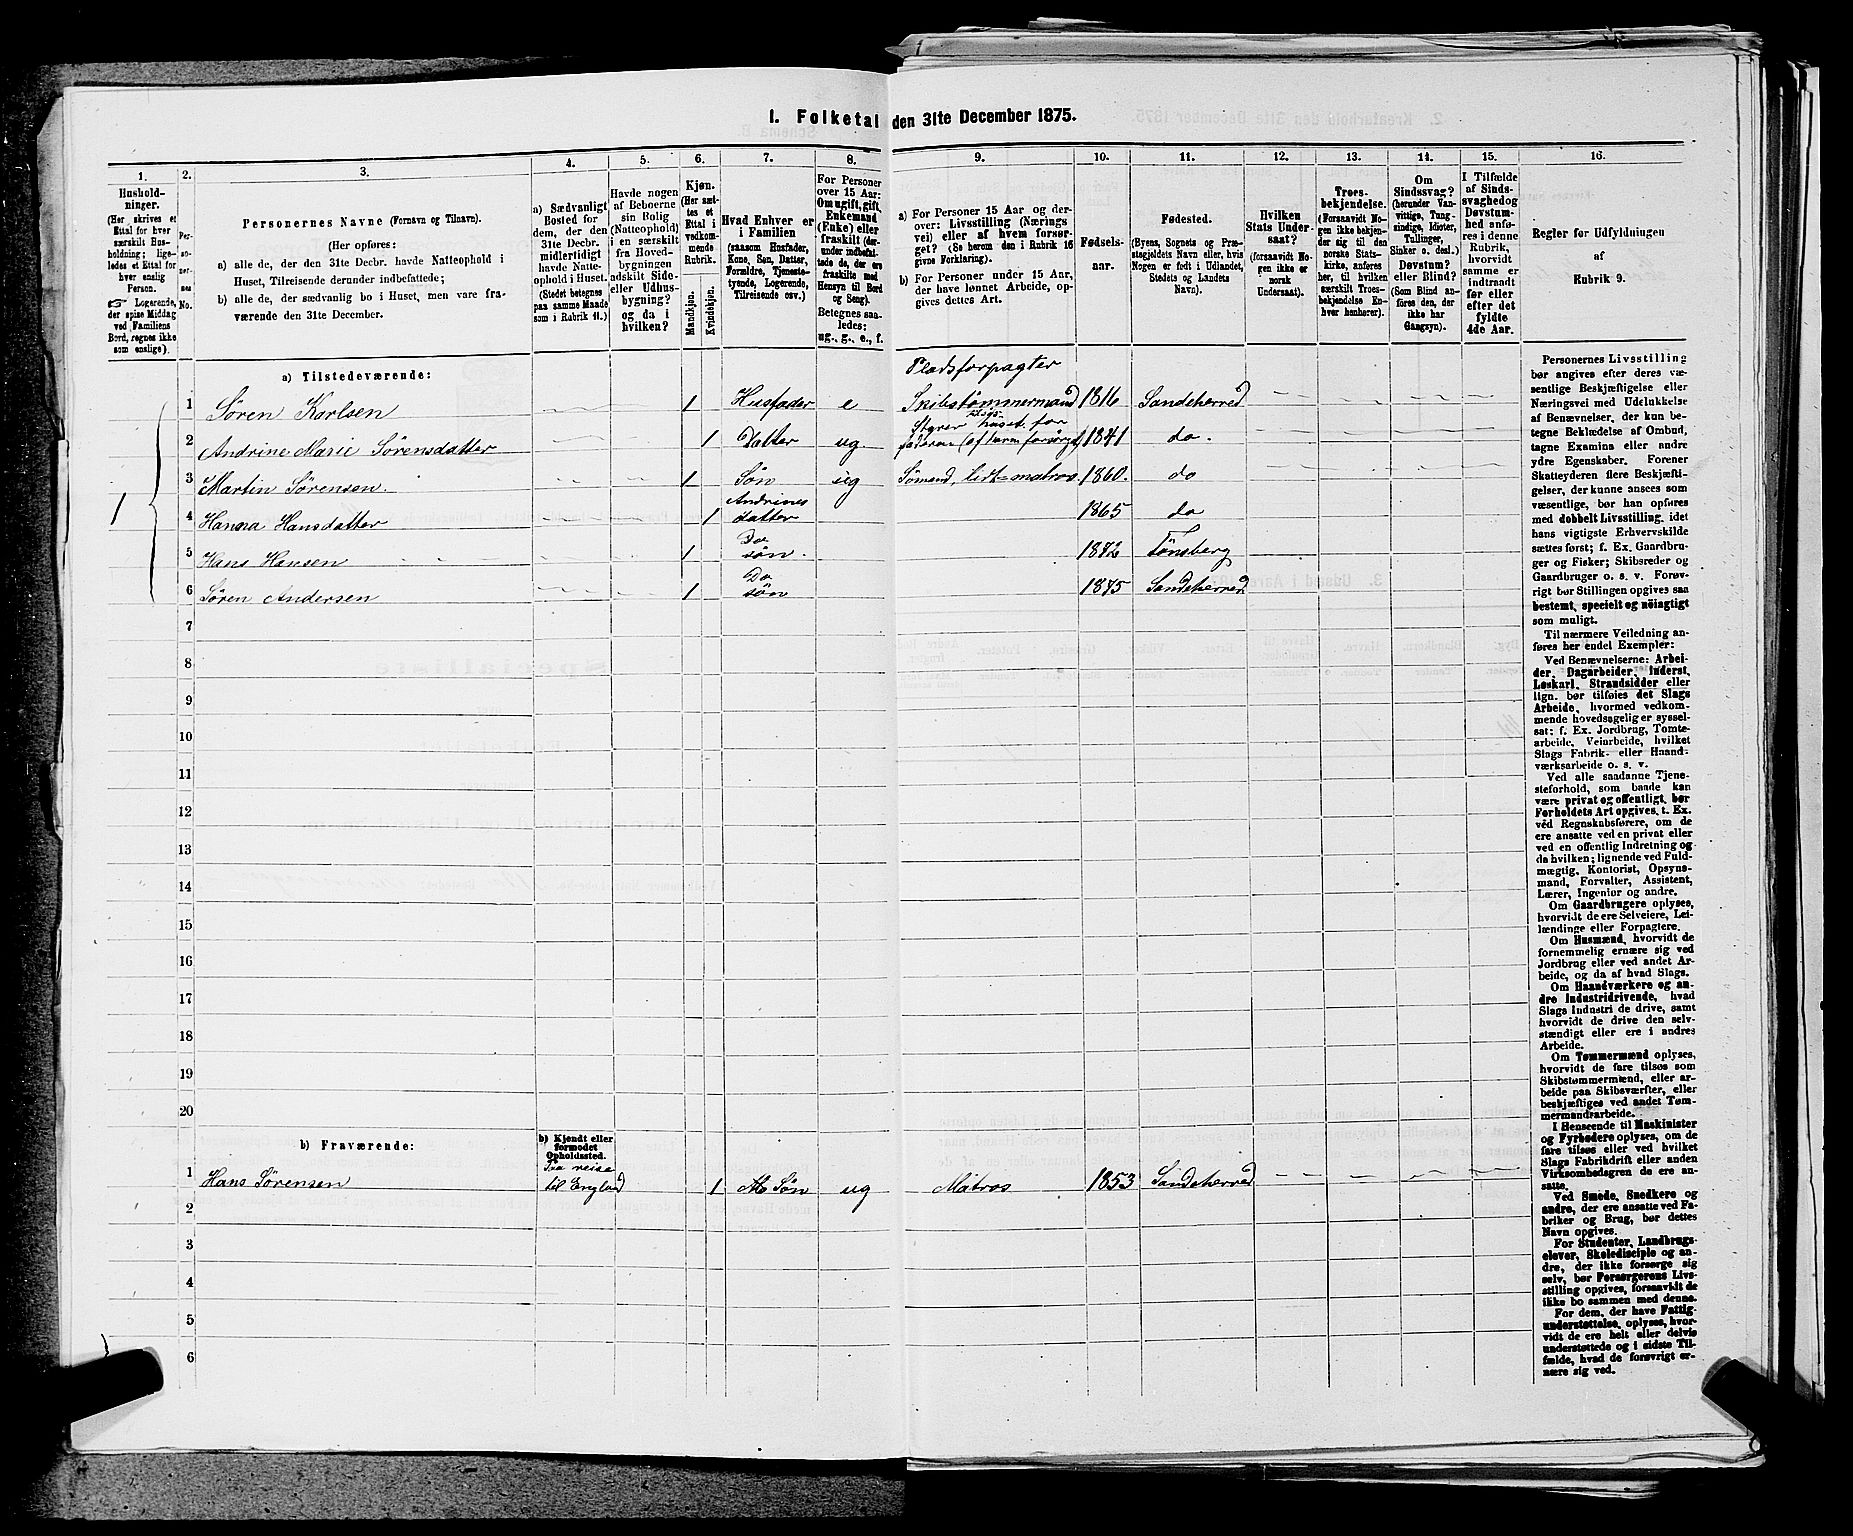 1. Folketal den 31te December 1875.
1.
Hushold-
ninger.
(Her skrives et
Ettal for hver
særskilt Hus-
holdning; lige-
ledes et Ettal for
hver enslig
Person.
☞ Logerende,
der spise Middag
ved Familiens
Bord, regnes ikke
som enslige).
2.
Per-
soner-
nes
No.
3.
Personernes Navne (Fornavn og Tilnavn).
(Her opføres:
a) alle de, der den 31te Decbr. havde Natteophold i
Huset, Tilreisende derunder indbefattede;
b) alle de, der sædvanlig bo i Huset, men vare fra-
værende den 31te December.
4.
a) Sædvanligt
Bosted for
dem, der den
31te Decbr.
midlertidigt
havde Natte-
ophold i Huset.
(Stedet betegnes
paa samme Maade
som i Rubrik 11.)
5.
Havde nogen
af Beboerne
sin Bolig
(Natteophold)
i en særskilt
fra Hoved-
bygningen
adskilt Side-
eller Udhus-
bygning?
og da i
hvilken?
6.
Kjøn.
(Her sæt-
tes et
Ettal i
vedkom-
mende
Rubrik.
Mandkjøn.
Kvindekjøn.
7.
Hvad Enhver er
i Familien
(saasom Husfader,
Kone, Søn, Datter,
Forældre, Tjeneste-
tyende, Logerende,
Tilreisende osv.)
8.
For Personer
over 15 Aar:
Om ugift, gift,
Enkemand
(Enke) eller
fraskilt (der-
under indbefat-
tede de, der ere
fraskilte med
Hensyn til Bord
og Seng).
Betegnes saa-
ledes:
ug., g., e., f.
9.
a) For Personer 15 Aar og der-
over: Livsstilling (Nærings-
vei) eller af hvem forsør-
get? (Se herom den i Rubrik 16
givne Forklaring).
b) For Personer under 15 Aar,
der have lønnet Arbeide, op-
gives dettes Art.
10.
Fødsels-
aar.
11.
Fødested.
(Byens, Sognets og Præ-
stegjeldets Navn eller, hvis
Nogen er født i Udlandet,
Stedets og Landets
Navn).
12.
Hvilken
Stats Under-
saat?
(forsaavidt No-
gen ikke er
norsk
Undersaat).
13.
Troes-
bekjendelse.
(Forsaavidt No-
gen ikke bekjen-
der sig til den
norske Stats-
kirke, anføres
her, til hvilken
særskilt Troes-
bekjendelse En-
hver henhører).
14.
Om
Sindssvag?
(herunder Van-
vittige, Tung-
sindige, Idioter,
Tullinger,
Sinker o. desl.)
Døvstum?
eller Blind?
(Som Blind an-
føres den, der
ikke har
Gangsyn).
15.
I Tilfælde
af Sinds-
svaghed og
Døvstum-
hed anfø-
res i denne
Rubrik,
hvorvidt
samme er
indtraadt
før eller
efter det
fyldte
4de Aar.
16.
Regler for Udfyldningen
af
Rubrik 9.
a) Tilstedeværende:
Pladsforpagter
1 Søren Karlsen 1 Husfader e Skibstømmermand 1816 Sandeherred
2 Andrine Marie Sørensdatter 1 Datter ug Styrer huset for faderen (af ham forsørget) 1841 do.
3 Martin Sørensen. 1 Søn ug Sømand, let-matros 1860. do
1
4 Hanna Hansdatter 1 Andrines datter 1865 do
5 Hans Hansen 1 Do søn. 1872 Tønsberg
6 Søren Andersen 1 Do søn 1875 Sandeherred
7
8
9
10
11
12
13
14
15
16
17
18
19
20
b) Fraværende:
b) Kjendt eller
formodet
Opholdssted.
1 Hans Sørensen Paa reise til England 1 Søn ug Matros 1853 Sandeherred
2
3
4
5
6
Personernes Livsstilling
bør angives efter deres væ-
sentlige Beskjæftigelse eller
Næringsvei med Udelukkelse
af Benævnelser, der kun be-
tegne Beklædelse af Ombud,
tagne Examina eller andre
ydre Egenskaber. Forener
Skatteyderen flere Beskjæfti-
gelser, der kunne ansees som
væsentlige, bør han opføres
med dobbelt Livsstilling, idet
hans vigtigste Erhvervskilde
sættes først; f. Ex. Gaardbru-
ger og Fisker; Skibsreder og
Gaardbruger o. s. v. Forøv-
rigt bør Stillingen opgives saa
bestemt, specielt og nöiagtigt
som muligt.
Til nærmere Veiledning an-
føres her endel Exempler:
Ved Benævnelserne: Arbei-
der, Dagarbeider, Inderst,
Løskarl, Strandsidder eller
lign. bør tilføies det Slags
Arbeide, hvormed vedkom-
mende hovedsagelig er syssel-
sat; f. Ex. Jordbrug, Tomte-
arbeide, Veiarbeide, hvilket
Slags Fabrik- eller Haand-
værksarbeide o. s. v.
Ved alle saadanne Tjene-
steforhold, som baade kan
være privat og offentligt, bør
Forholdets Art opgives, t. Ex.
ved Regnskabsførere, om de
ere ansatte ved en privat eller
ved en offentlig Indretning og
da hvilken; lignende ved Fuld-
mægtig, Kontorist, Opsyns-
mand, Forvalter, Assistent,
Lærer, Ingeniør og andre.
Om Gaardbrugere oplyses,
hvorvidt de ere Selveiere, Lei-
lændinge eller Forpagtere.
Om Husmænd, hvorvidt de
fornemmelig ernære sig ved
Jordbrug eller ved andet Ar-
beide, og da af hvad Slags.
Om Haandværkere og an-
dre Industridrivende, hvad
Slags Industri de drive, samt
hvorvidt de drive den selv-
stændigt eller ere i andres
Arbeide.
Om Tømmermænd oplyses,
hvorvidt de fare tilsøs som
Skibstømmermænd, eller ar-
beide paa Skibsværfter, eller
beskjæftiges ved andet Tøm-
mermandsarbeide.
I Henseende til Maskinister
og Fyrbødere oplyses, om de
fare tilsøs eller ved hvilket
Slags Fabrikdrift eller anden
Virksomhedsgren de ere an-
satte.
Ved Smede, Snedkere og
andre, der ere ansatte ved Fa-
briker og Brug, bør dettes
Navn opgives.
For Studenter, Landbrugs-
elever, Skoledisciple og an-
dre, der ikke forsørge sig
selv, bør Forsørgerens Livs-
stilling opgives, forsaavidt de
ikke bo sammen med denne.
For dem, der have Fattig-
understøttelse, oplyses, hvor-
vidt de ere helt eller delvis
understøttede og i sidste Til-
fælde, hvad de forøvrigt er-
nære sig ved.